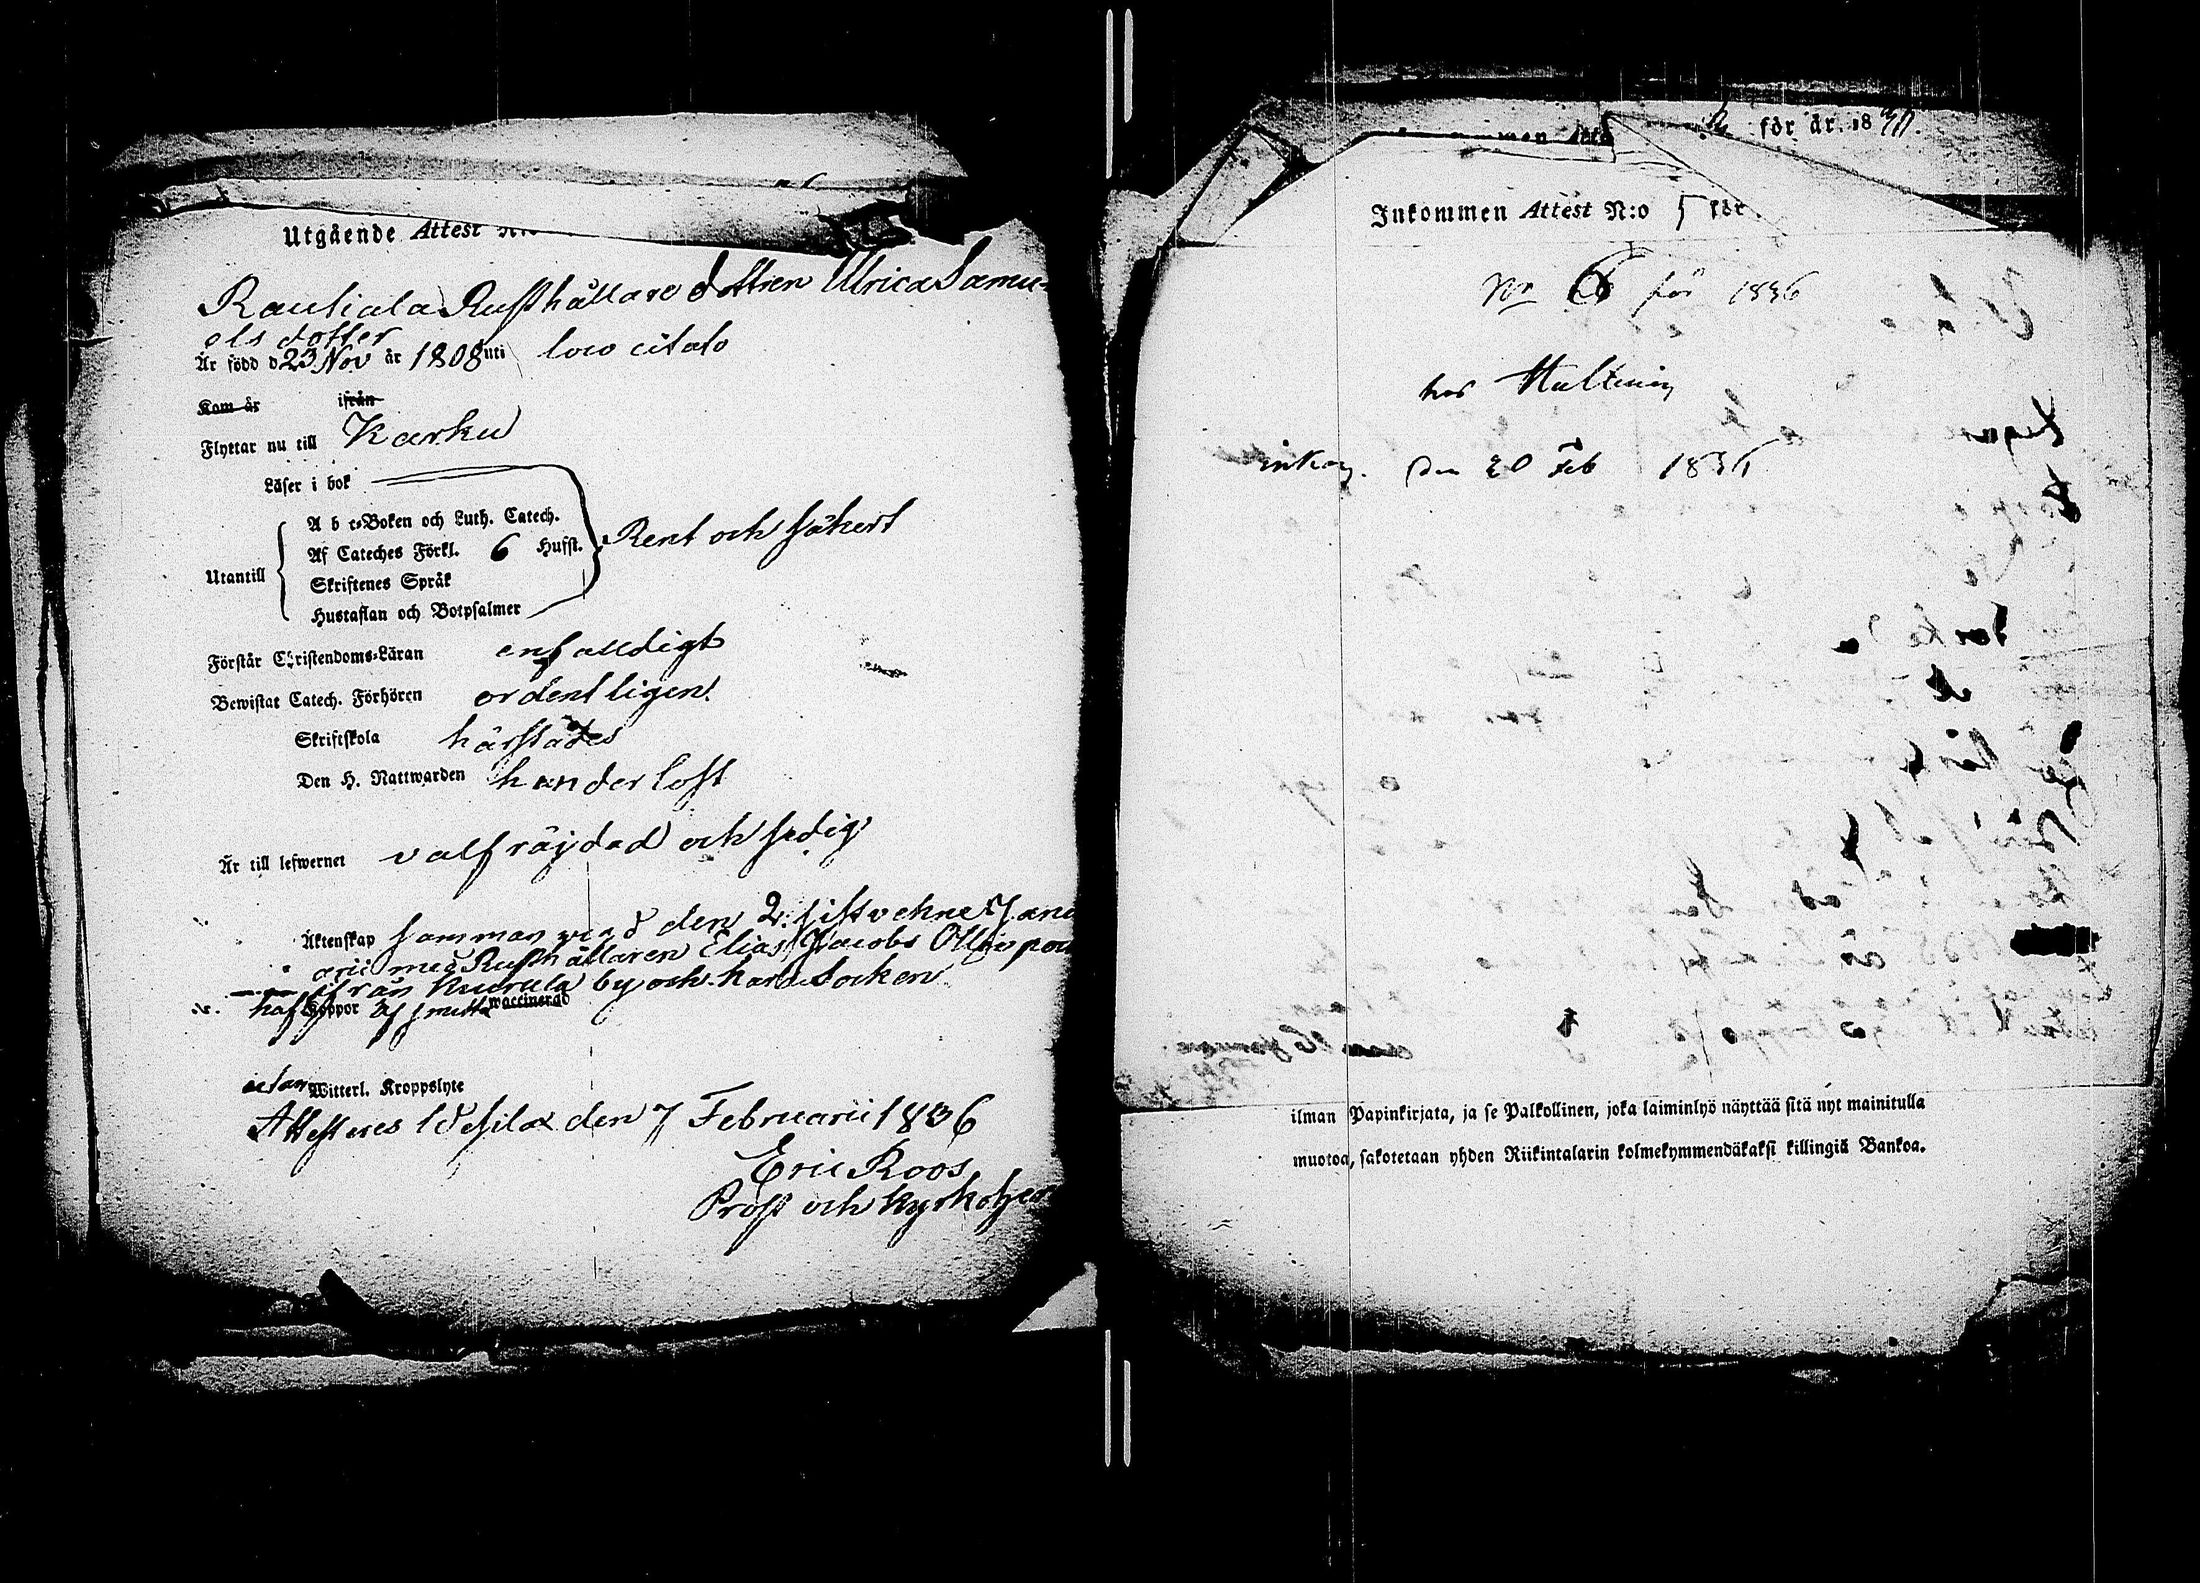 Utgående Attest
Rautiala Rusthållare dottren Ulrica Samu-
els dotter
Är född d 23 Nov år 1808 uti loco citato
Kom år ifrån
Flyttar nu till Karku
Läser i bok
A b c-Boken och Luth. Catech.
Af Cateches Förkl. 6 Hufst. Rent och säkert
Utantill
Skriftenes Språk
Hustaflan och Botpsalmer
Förstår Christendoms-Läran enfalldigt
Bewistat Catech. Förhören ordentligen
Skriftskola härstädes
Den H. Nattwarden hinderlöst
Är till lefwernet välfräjdad och sedig
Äktenskap samman vind den 2 sistvekne Janu
arii med Rusthållaren Elias Jacobs
ifrån by och Karku Socken
haft Koppor af smitta waccinerad
utan Witterl. Kroppslyte
Attesteres den 7 Februarii 1836
Eric Roos
Prost och Kyrkoher
för år 18
Inkommen Attest N:o 5 för
No 6 för 1836
hos
den 20 Feb 1836
ilman Papinkirjata, ja se Palkollinen, joka laiminlyö näyttää sitä nyt mainitulla
muotoa, sakotetaan yhden Riikintalarin kolmekymmendäkaksi killingiä Bankoa.